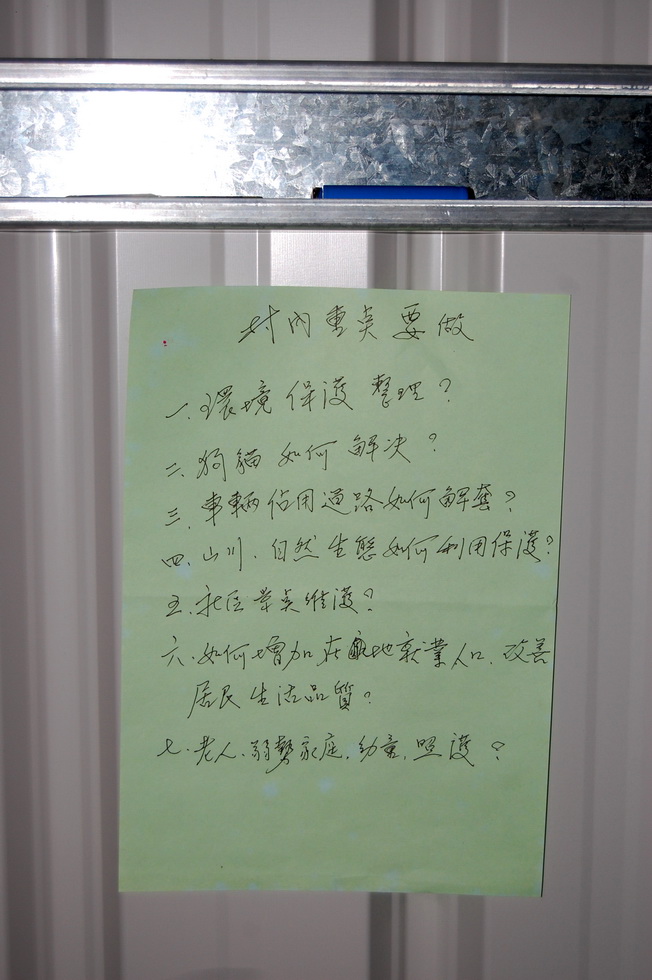 村內重点要做
一.環境保護整理?
二.狗貓如何解决?
三.車輛佔用道路如何解套?
四.山川.自然生態如何利用保護?
五.社区景点維護?
六.如何增加在地就業人口.改善
居民生活品質?
七.老人.弱勢家庭.幼童.照護?